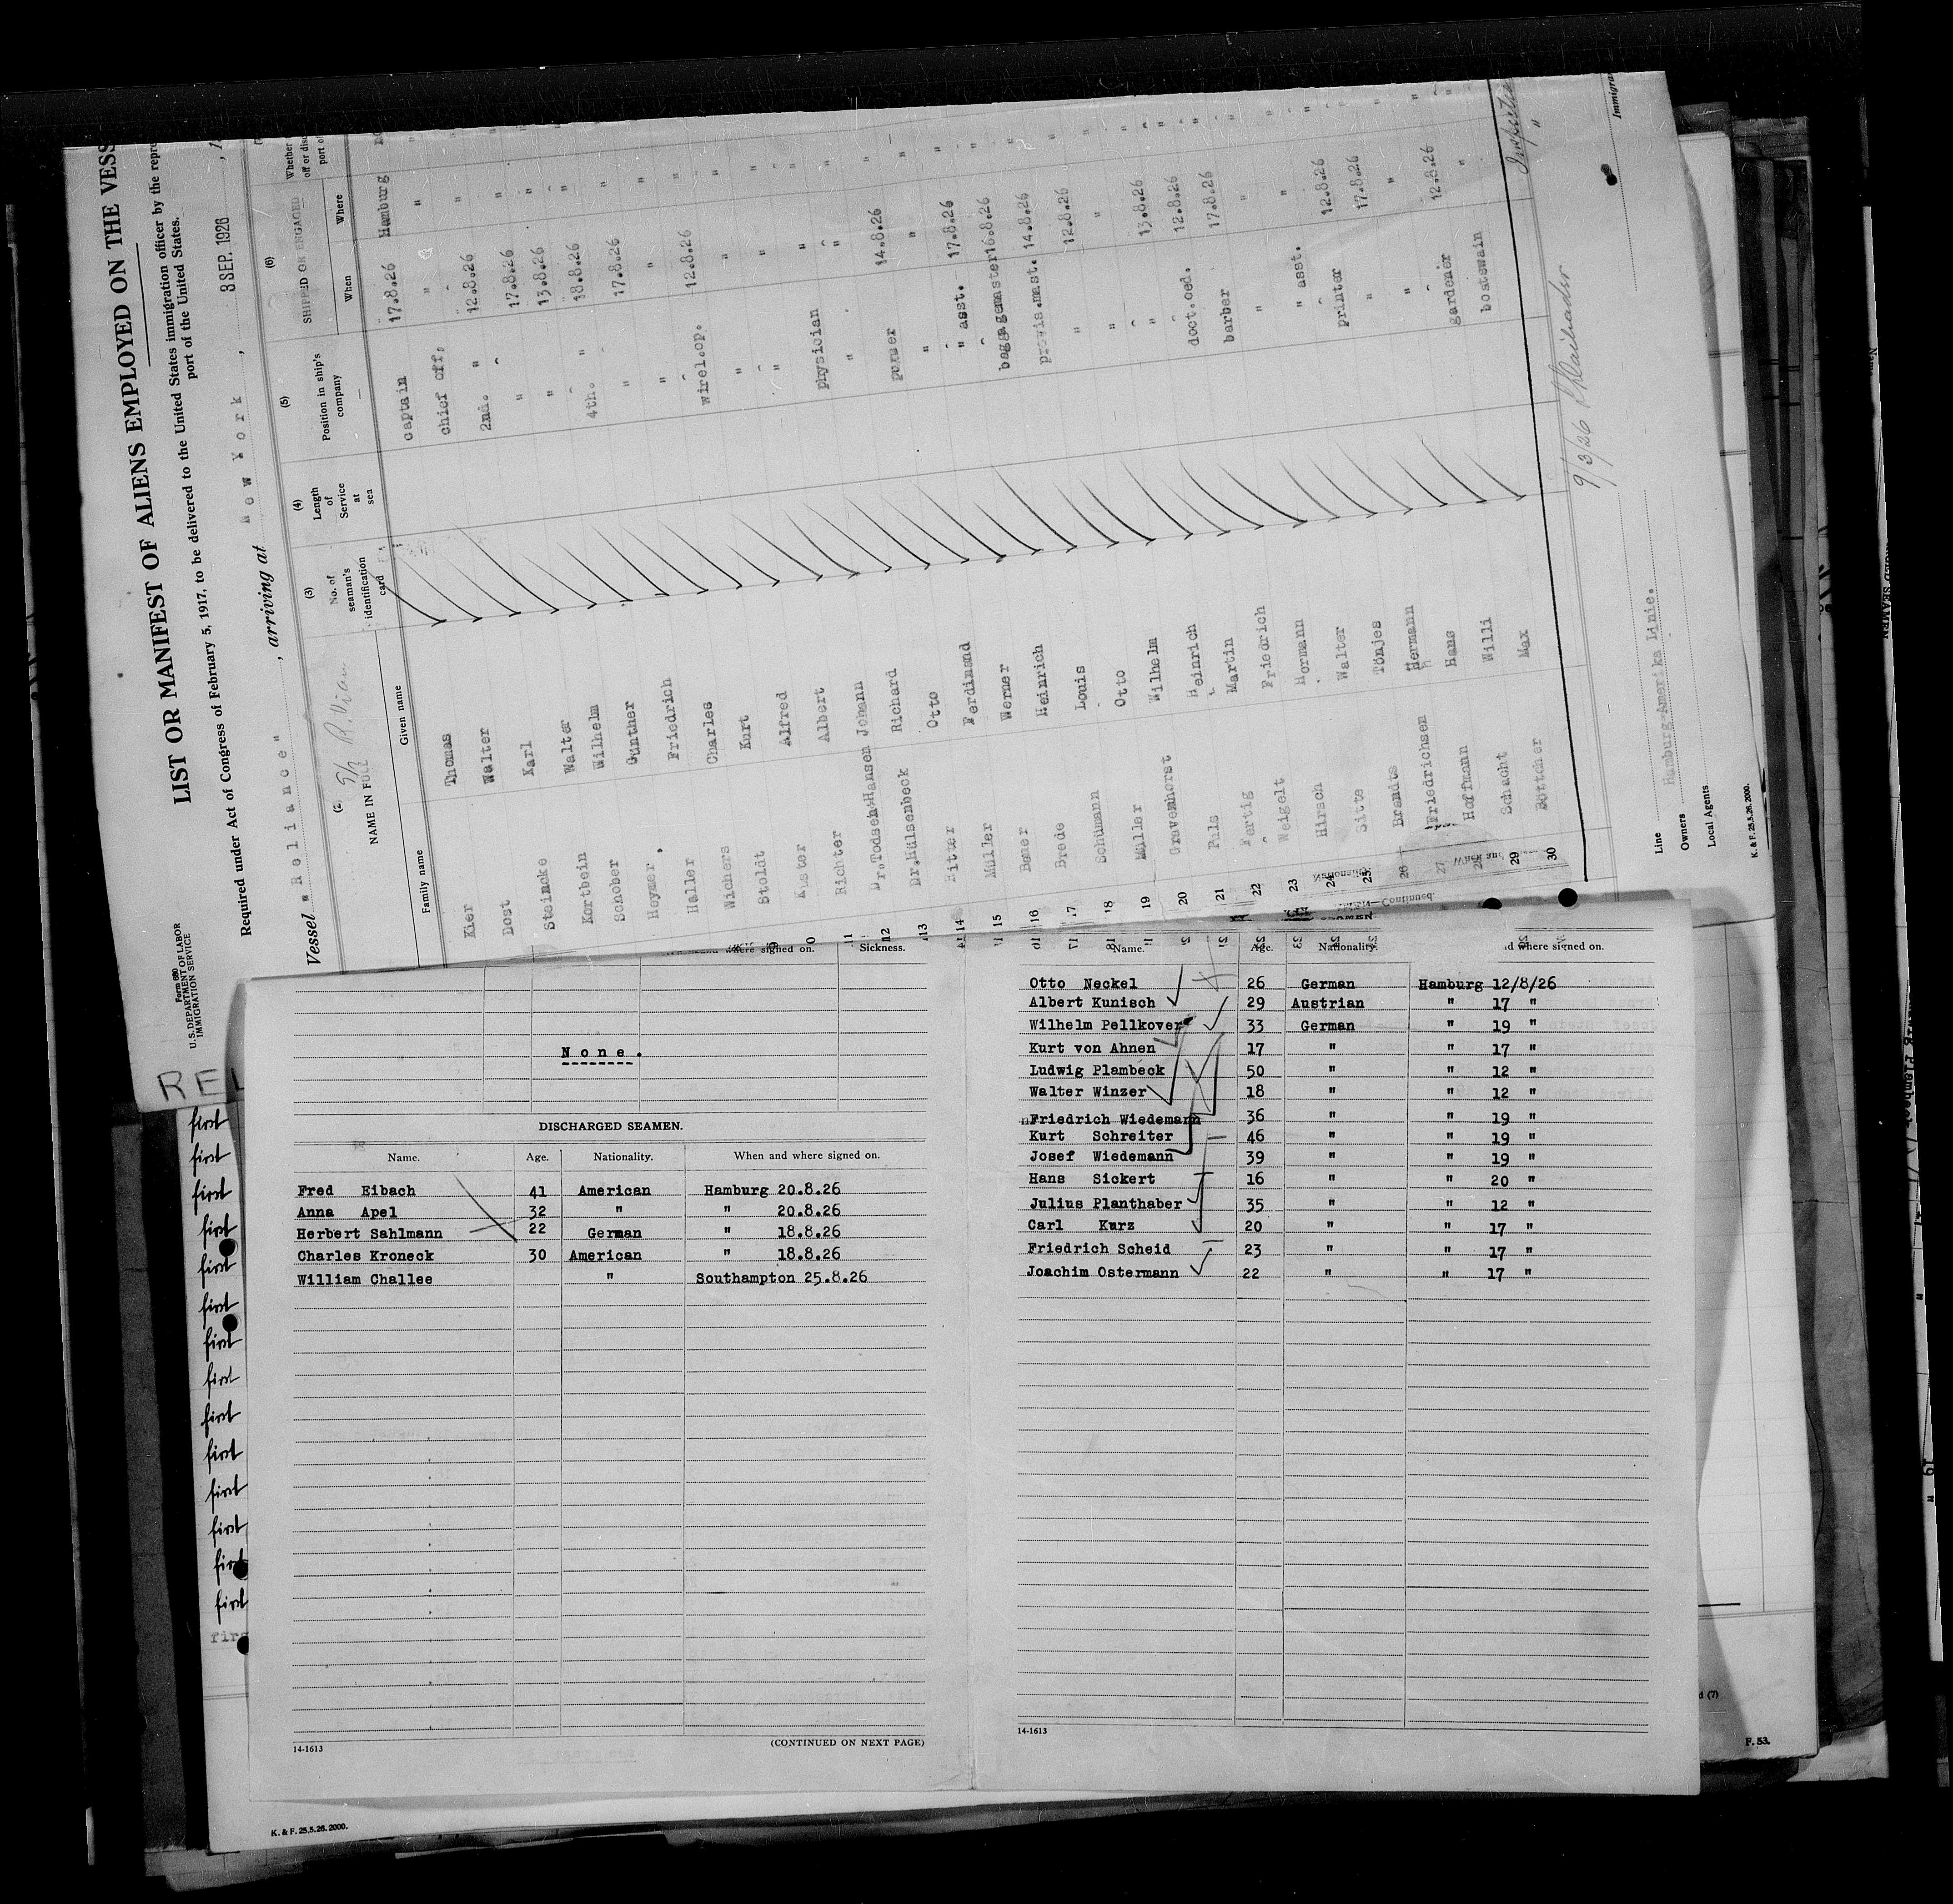 Form 680
U. S. DEPARTMENT OF LABOR
IMMIGRATION SERVICE
LIST OR MANIFEST OF ALIENS EMPLOYED ON THE VESS
Required under Act of Congress of February 5, 1917, to be delivered to the United States immigration officer by the repre
port of the United States.
Vessel " Reliance " , arriving at New York , 3 SEP. 1926 , 1
(2) (3) (4) (5) (6)
NAME IN FULL
Family name Given name
No. of seaman's identification card
Length of Service at sea
Position in ship's company
SHIPPED OR ENGAGED
When Where
Whether
off or disc
port o
Kier Thomas captain 17.8.26 Hamburg
Dost Walter chief off. " "
Steincke Karl 2nd. " 12.8.26 "
Kortbein Walter " 17.8.26 "
Schober Wilhelm " 13.8.26 "
Heymer, Günther 4th. " 18.8.26 "
Haller Friedrich " 17.8.26 "
Wichers Charles " " "
Stoldt Kurt wirel.op. 12.8.26 "
Küster Alfred " " "
11 Richter Albert " " "
12 Dr.Todsen-Hansen Johann physician " "
13 Dr.Hülsenbeck Richard " " "
14 Ritter Otto purser 14.8.26 "
15 Müller Ferdinand " " "
16 Bauer Werner " asst. 17.8.26 "
17 Brede Heinrich baggagemaster 16.8.26 "
18 Schümann Louis provis.mast. 14.8.26 "
19 Müller Otto " 12.8.26 "
20 Gravenhorst Wilhelm " " "
21 Pals Heinrich " 13.8.26 "
22 Fertig Martin doct.oed. 12.8.26 "
23 Weigelt Friedrich barber 17.8.26 "
24 Hirsch Hermann " " "
25 Sitte Walter " asst. " "
26 Brandts Tönjes printer 12.8.26 "
27 Friedrichsen Hermann " 17.8.26 "
28 Hoffmann Hans " " "
29 Schacht Willi gardener 12.8.26 "
30 Böttcher Max boatswain " "
9/3/26
Line Hamburg-Amerika Linie.
Owners
Local Agents
Immigra
K. & F. 25.5.26. 2000.
REL
first
first
first
first
first
first
first
first
first
first
first
first
first
first
where signed on. Sickness.
None.
DISCHARGED SEAMEN.
Name. Age. Nationality. When and where signed on.
Fred Eibach 41 American Hamburg 20.8.26
Anna Apel 32 " " 20.8.26
Herbert Sahlmann 22 German " 18.8.26
Charles Kroneck 30 American " 18.8.26
William Challee " Southampton 25.8.26
14-1613 (CONTINUED ON NEXT PAGE)
—Continued
SEAMEN
Name. Age. Nationality. nd where signed on.
Otto Neckel 26 German Hamburg 12/8/26
Albert Kunisch 29 Austrian " 17 "
Wilhelm Pellkover 33 German " 19 "
Kurt von Ahnen 17 " " 17 "
Ludwig Plambeck 50 " " 12 "
Walter Winzer 18 " " 12 "
Friedrich Wiedemann 36 " " 19 "
Kurt Schreiter 46 " " 19 "
Josef Wiedemann 39 " " 19 "
Hans Sickert 16 " " 20 "
Julius Planthaber 35 " " 12 "
Carl Kurz 20 " " 17 "
Friedrich Scheid 23 " " 17 "
Joachim Ostermann 22 " " 17 "
14-1613
d (7)
F. 53.
K. & F. 25.5.26. 2000.